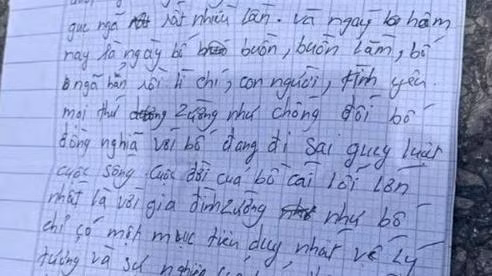 gục ngã rất nhiều lần. và ngay hôm
nay là ngày bố buồn, buồn lắm, bố
ngã hẳn rồi lí chí, con người, tình yêu.
mọi thứ dường như chống đối bố
đồng nghĩa với bố đang đi sai quy luật
cuộc sống cuộc đời của bố cái lỗi lớn
nhất là với gia đình như bố
chỉ có một mục tiêu duy nhất về lý
tưởng và sự nghiệp